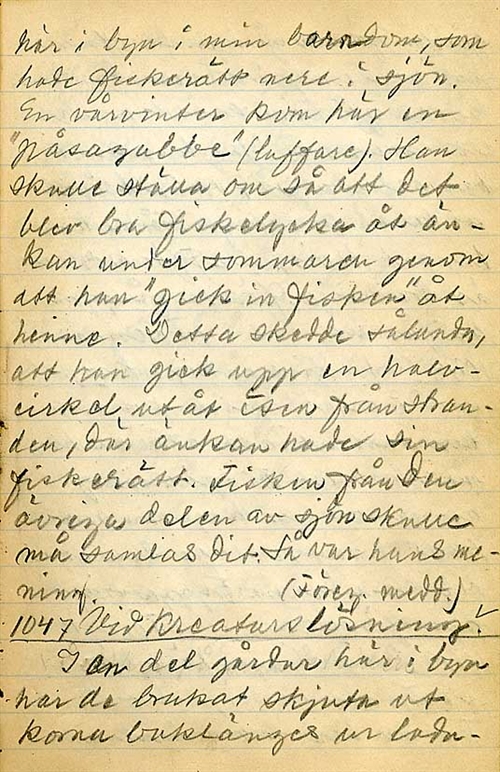 här i byn i min barndom, som
hade fiskerätt nere i sjön.
En vårvinter kom här en
"påsagubbe" (luffare). Han
skulle ställa om så att det
blev bra fiskelycka åt än-
kan under sommaren genom
att han "gick in fisken" åt
henne. Detta skedde sålunda,
att han gick upp en halv-
cirkel utåt isen från stran-
den, där änkan hade sin
fiskerätt. Fisken från den
övriga delen av sjön skulle
må samlas dit. Så var hans me-
ning. (Föreg. medd.)
1047 Vid kreaturslösning.
I en del gårdar här i byn
har de brukat skjuta ut
korna baklänges ur ladu-